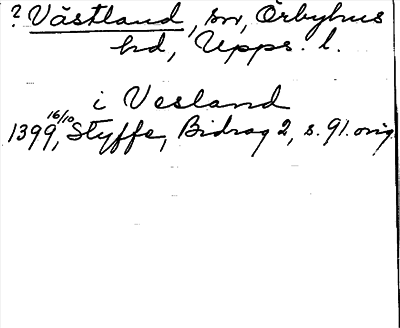 ? Västland, sn, Örbyhus
hd, Upps. l.
i Vesland
1399 16/10, Styffe, Bidrag 2, s. 91. orig